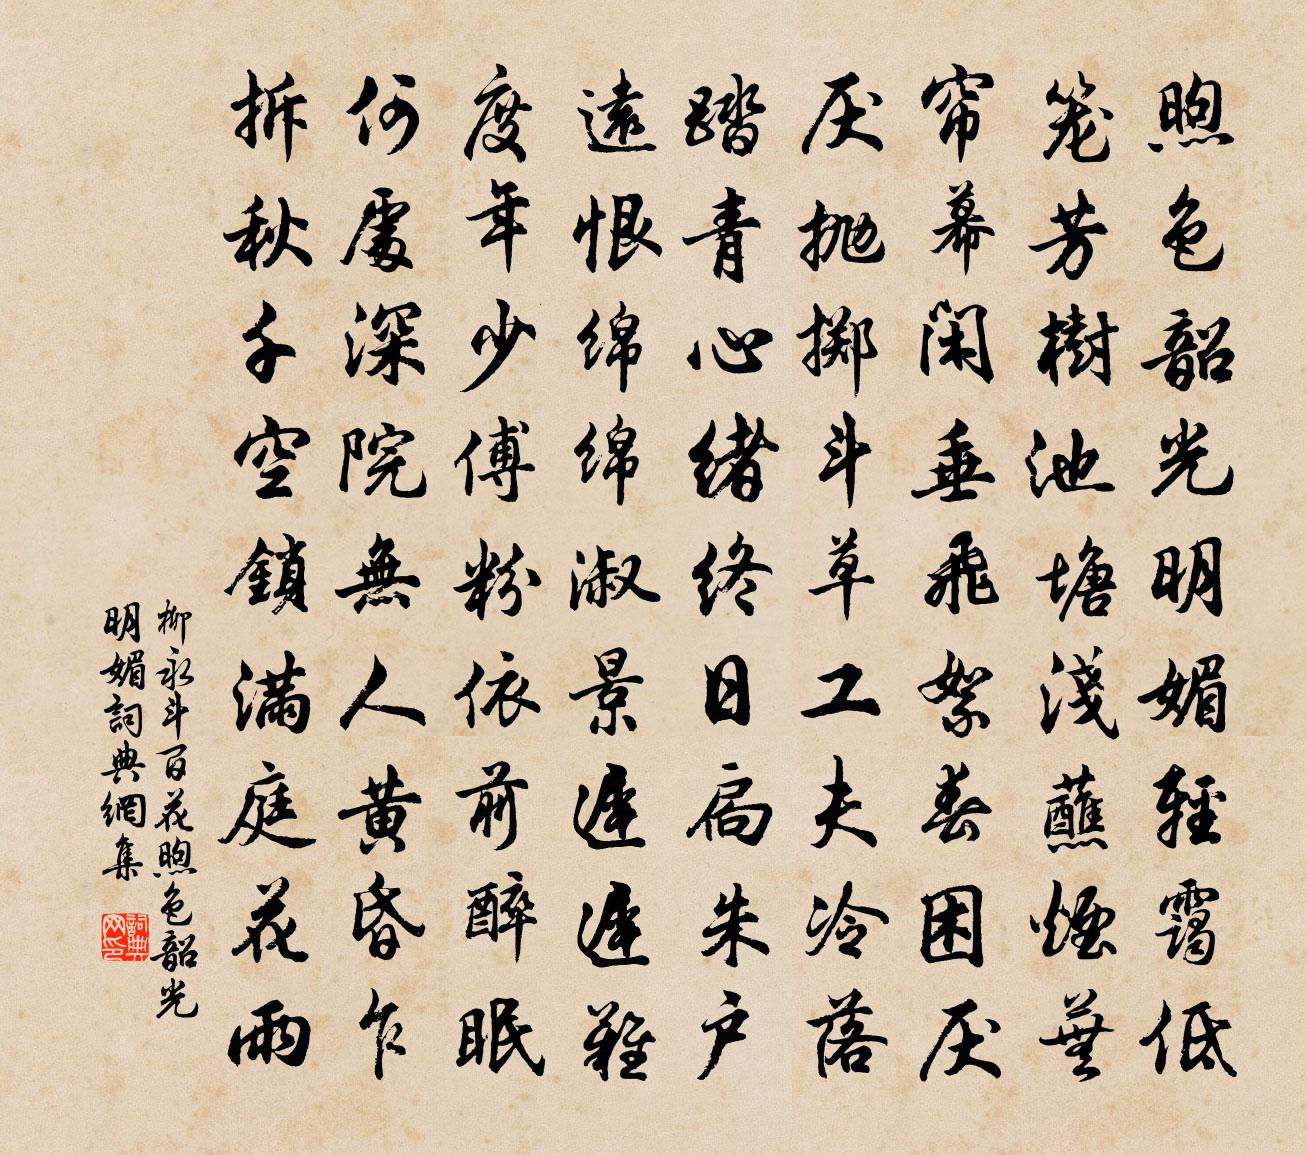 煦色韶光明媚輕靄低
籠芳樹池塘淺蘸煙蕪
帘幕閑垂飛絮春困厌
厌抛掷斗草工夫冷落
踏青心緒終日扃朱户
遠恨绵绵淑景遲遲難
度年少傅粉依前醉眠
何處深院無人黄昏乍
拆秋千空鎖滿庭花雨
柳永斗百花煦色韶光
明媚詞典網集
詞典网印